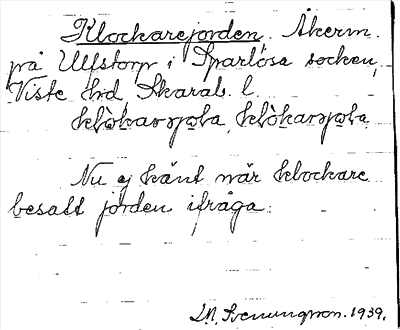 Klockarejorden. Åkerm.
på Ulfstorp i Sparlösa socken,
Viste hd, Skarab. l.
Nu ej känt när klockare
besatt jorden ifråga.
1939.